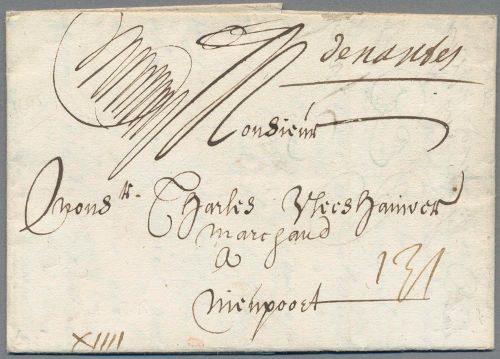 de nantes
Monsieur
Mons.r Charles Vleeshauwer
Marchand
A
Nieupoort
XIIII